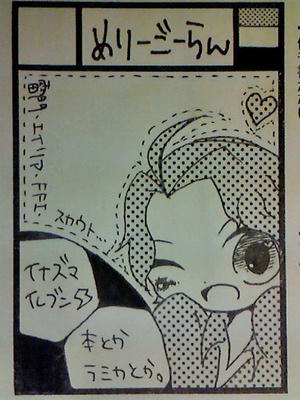 めりーごーらん
雷門、エイリア、FFI、
スカウト…
イナズマ
イレブン53
本とか
ラミカとか。